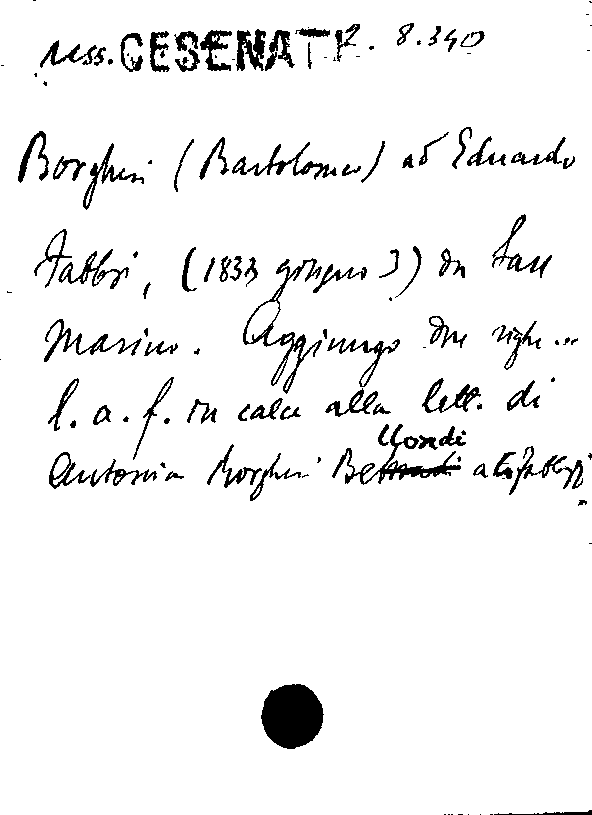 Mss. CESENATI 2. 8.340
Borghesi (Bartolomeo) ad Eduardo
Fabbri, (1833 giugno 3) da San
Marino. Aggiungo due righe...
l. a. f. in calce alla lett. di
llondi
Antonia Borghesi Be a E. Fabbri